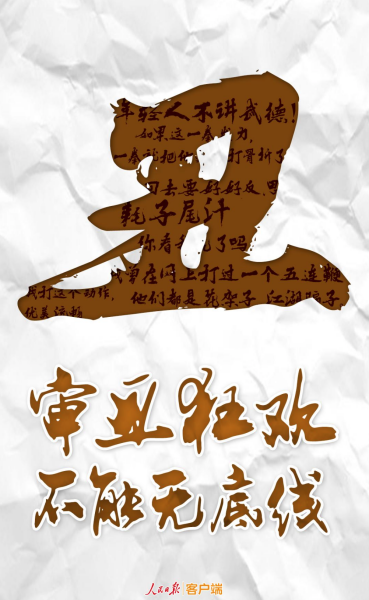 丑
年轻人不讲武德!
如果这一拳发力,
一拳就把他 打骨折了
回去要好好反思
耗子尾汁
你看 了吗
我曾在网上打过一个五连鞭
我打这个动作,他们都是花架子 江湖骗子
优美流畅
审丑狂欢
不能无底线
人民日报 客户端